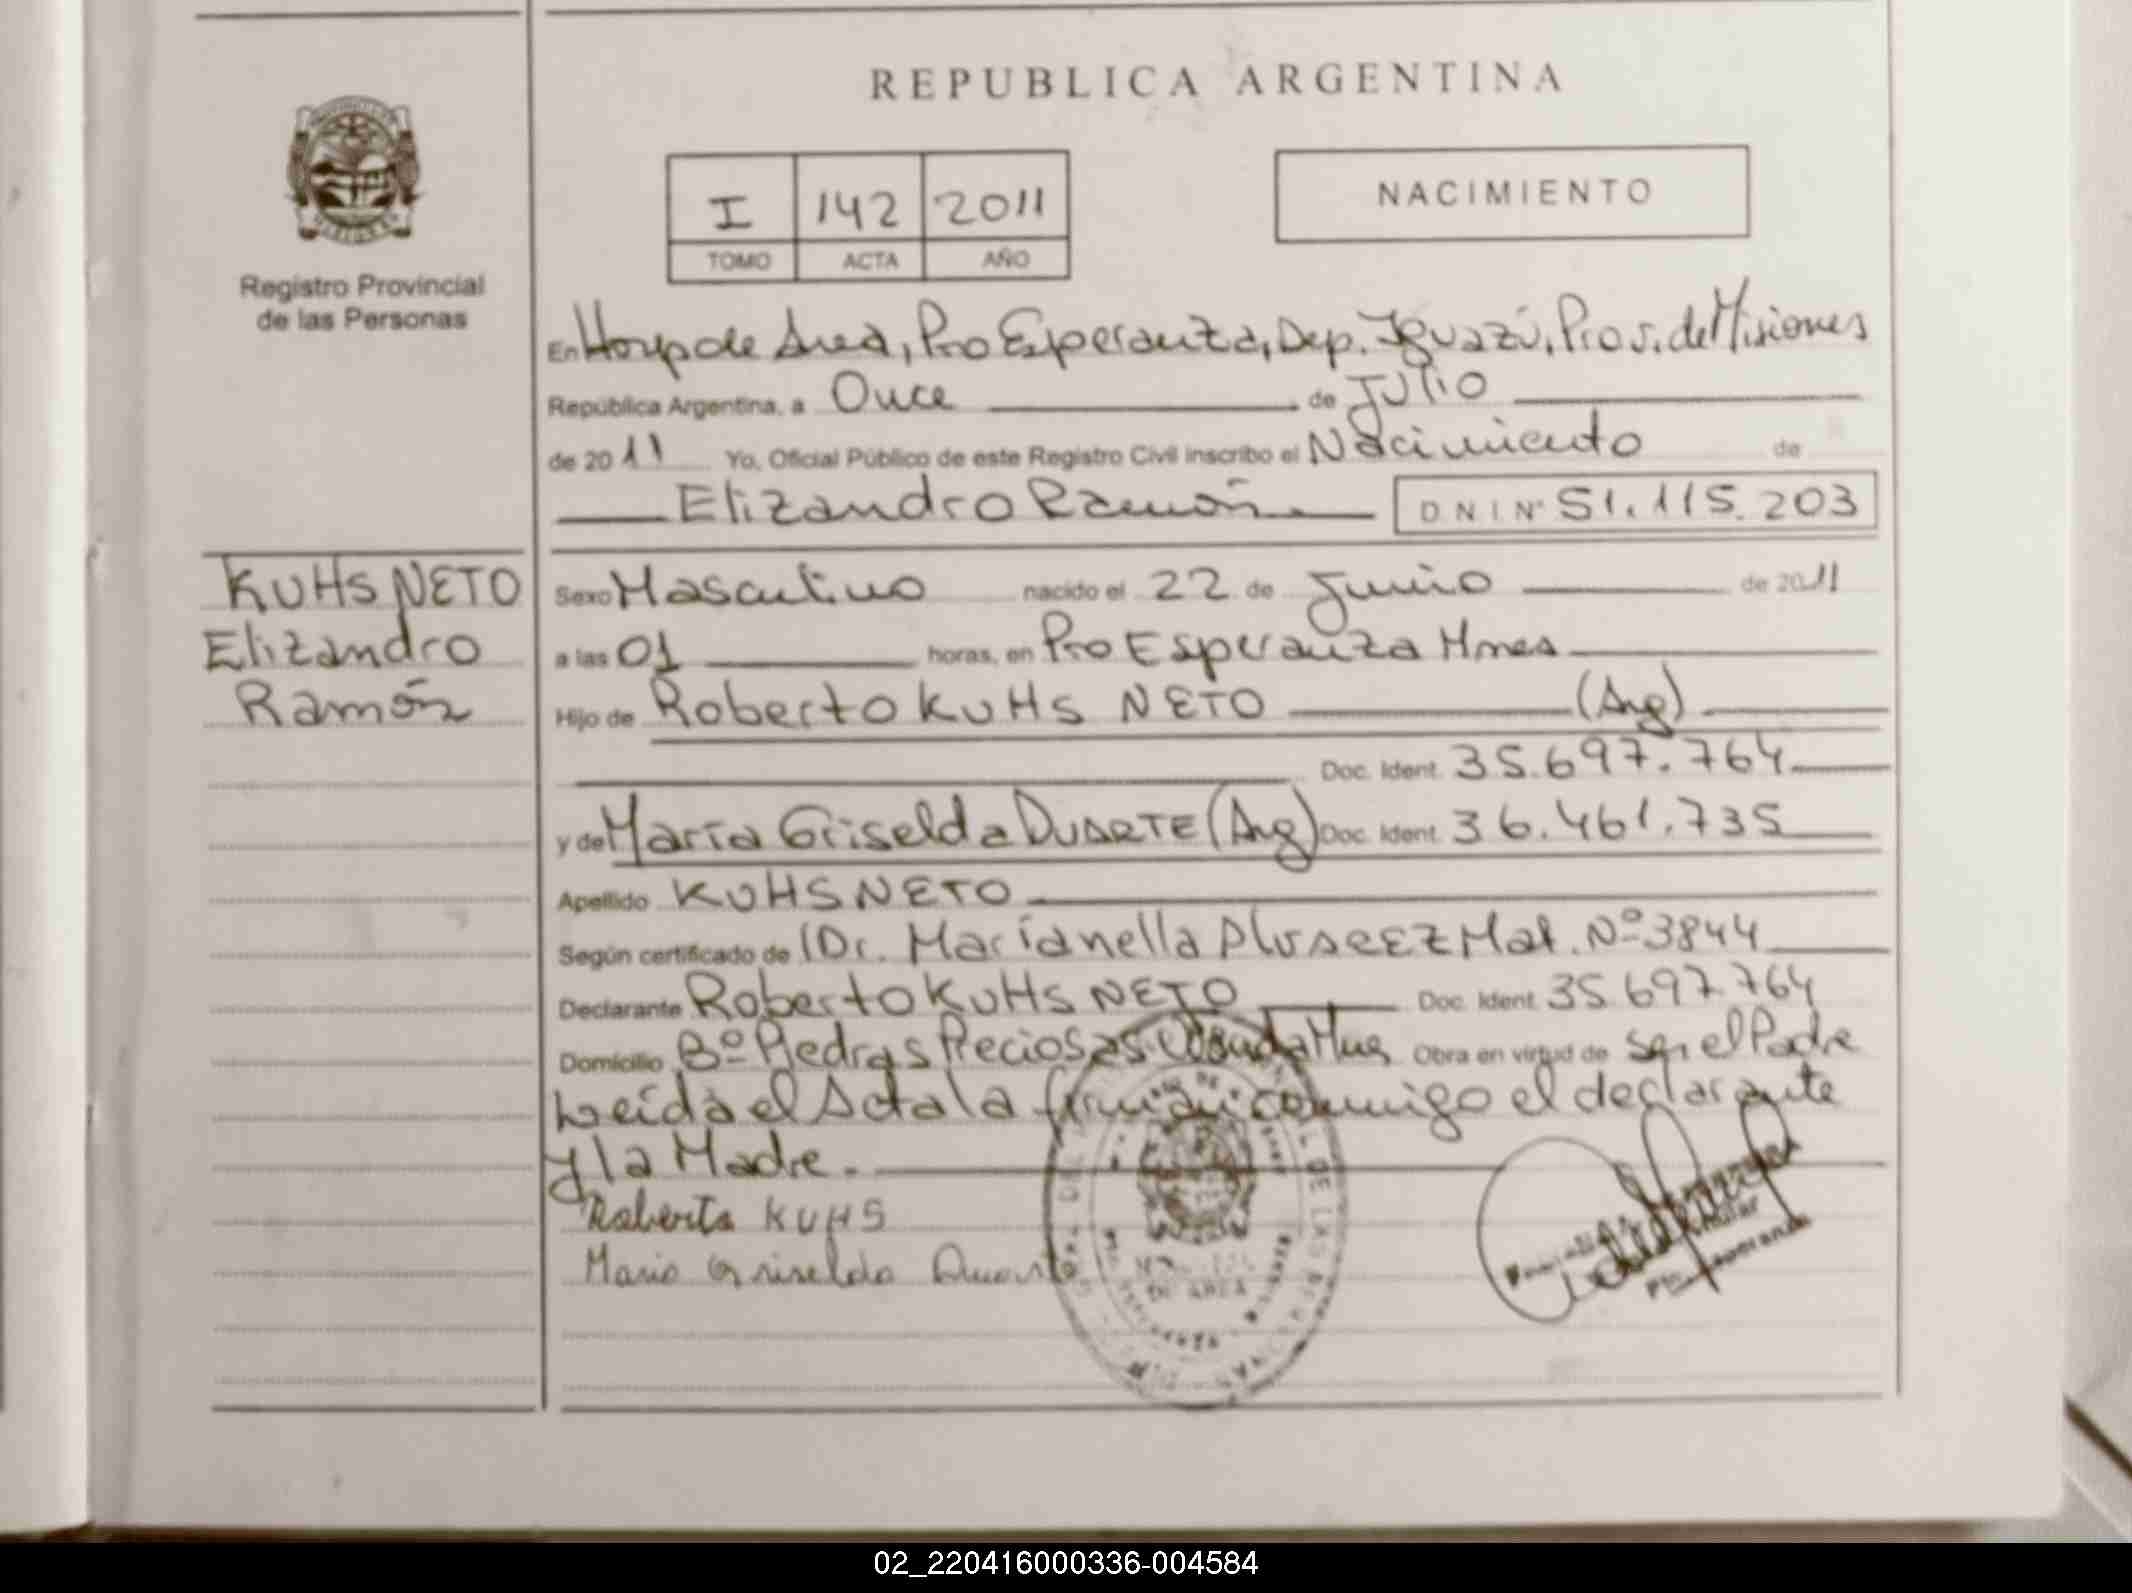 REPUBLICA ARGENTINA
I 142 2011
TOMO ACTA AÑO
NACIMIENTO
Registro Provincial
de las Personas
En Hosp de Area, Pto Esperanza, Dep. Iguazú, Prov. de Misiones
República Argentina, a Once de Julio
de 2011 Yo, Oficial Público de este Registro Civil inscribo el Nacimiento de
Elizandro Ramón DNI Nº 51.115.203
KUHS NETO
Elizandro
Ramón
Sexo Masculino nacido el 22 de Junio de 2011
a las 01 horas, en Pto Esperanza Mnes
Hijo de Roberto KUHS NETO (Arg)
Doc. Ident. 35.697.764
y de María Griselda DUARTE (Arg) Doc. Ident. 36.461.735
Apellido KUHS NETO
Según certificado de Dr. Marianella Mat. Nº 3844
Declarante Roberto KUHS NETO Doc. Ident. 35.697.764
Domicilio Bº Piedras Preciosas Obra en virtud de ser el Padre
Leída el Acta la firman conmigo el declarante
y la Madre.
Roberto KUHS
Maria Griselda Duarte
DE AREA
02_220416000336-004584